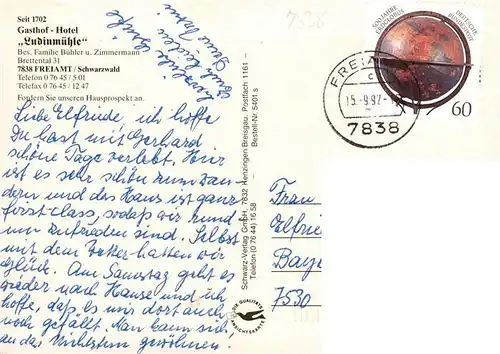 Seit 1702
Gasthof - Hotel
„Ludinmühle“
Bes. Familie Bühler u. Zimmermann
Brettental 31
7838 FREIAMT / Schwarzwald
Telefon 0 76 45 / 5 01
Telefax 0 76 45 / 12 47
Fordern Sie unseren Hausprospekt an.
Liebe Elfriede, ich hoffe
Du hast mit Gerhard
schöne Tage verlebt. Hier
ist es sehr schön zum wan-
dern und das Haus ist ganz
first class, sodaß wir rund-
um zufrieden sind. Selbst
mit dem Wetter hatten wir
Glück. Am Samstag geht es
wieder nach Hause und ich
hoffe, daß es mir dort auch
noch gefällt. Man kann sich
an das Nichtstun gewöhnen.
Grüße
Schwarz-Verlag GmbH, 7832 Kenzingen Breisgau, Postfach 1161 -
Telefon (0 76 44) 16 58
Bestell-Nr. 5401 s
DIE QUALITÄTS
ANSICHTSKARTE
7538
FREIAMT
c
15.-9.92
7838
500 JAHRE
ERDGLOBUS
DEUTSCHE
BUNDESPOST
60
Frau
Elfrie
Baye
7530